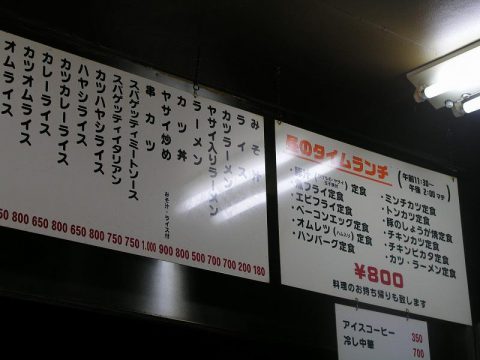 みそ汁
ライス
カツラーメン
ヤサイ入りラーメン
ラーメン
カツ丼
ヤサイ炒め
串カツ
みそ汁・ライス付
スパゲッティミートソース
スパゲッティイタリアン
カツハヤシライス
ハヤシライス
カツカレーライス
カレーライス
カツオムライス
オムライス
50 800 650 800 650 800 750 750 1.000 900 800 500 700 700 200 180
昼のタイムランチ
(午前11:30~
午後 2:00マデ)
定食
・魚フライ定食
・エビフライ定食
・ベーコンエッグ定食
・オムレツ(ハム入り)定食
・ハンバーグ定食
・ミンチカツ定食
・トンカツ定食
・豚のしょうが焼定食
・チキンカツ定食
・チキンピカタ定食
・カツ・ラーメン定食
¥800
料理のお持ち帰りも致します
アイスコーヒー 350
冷し中華 700